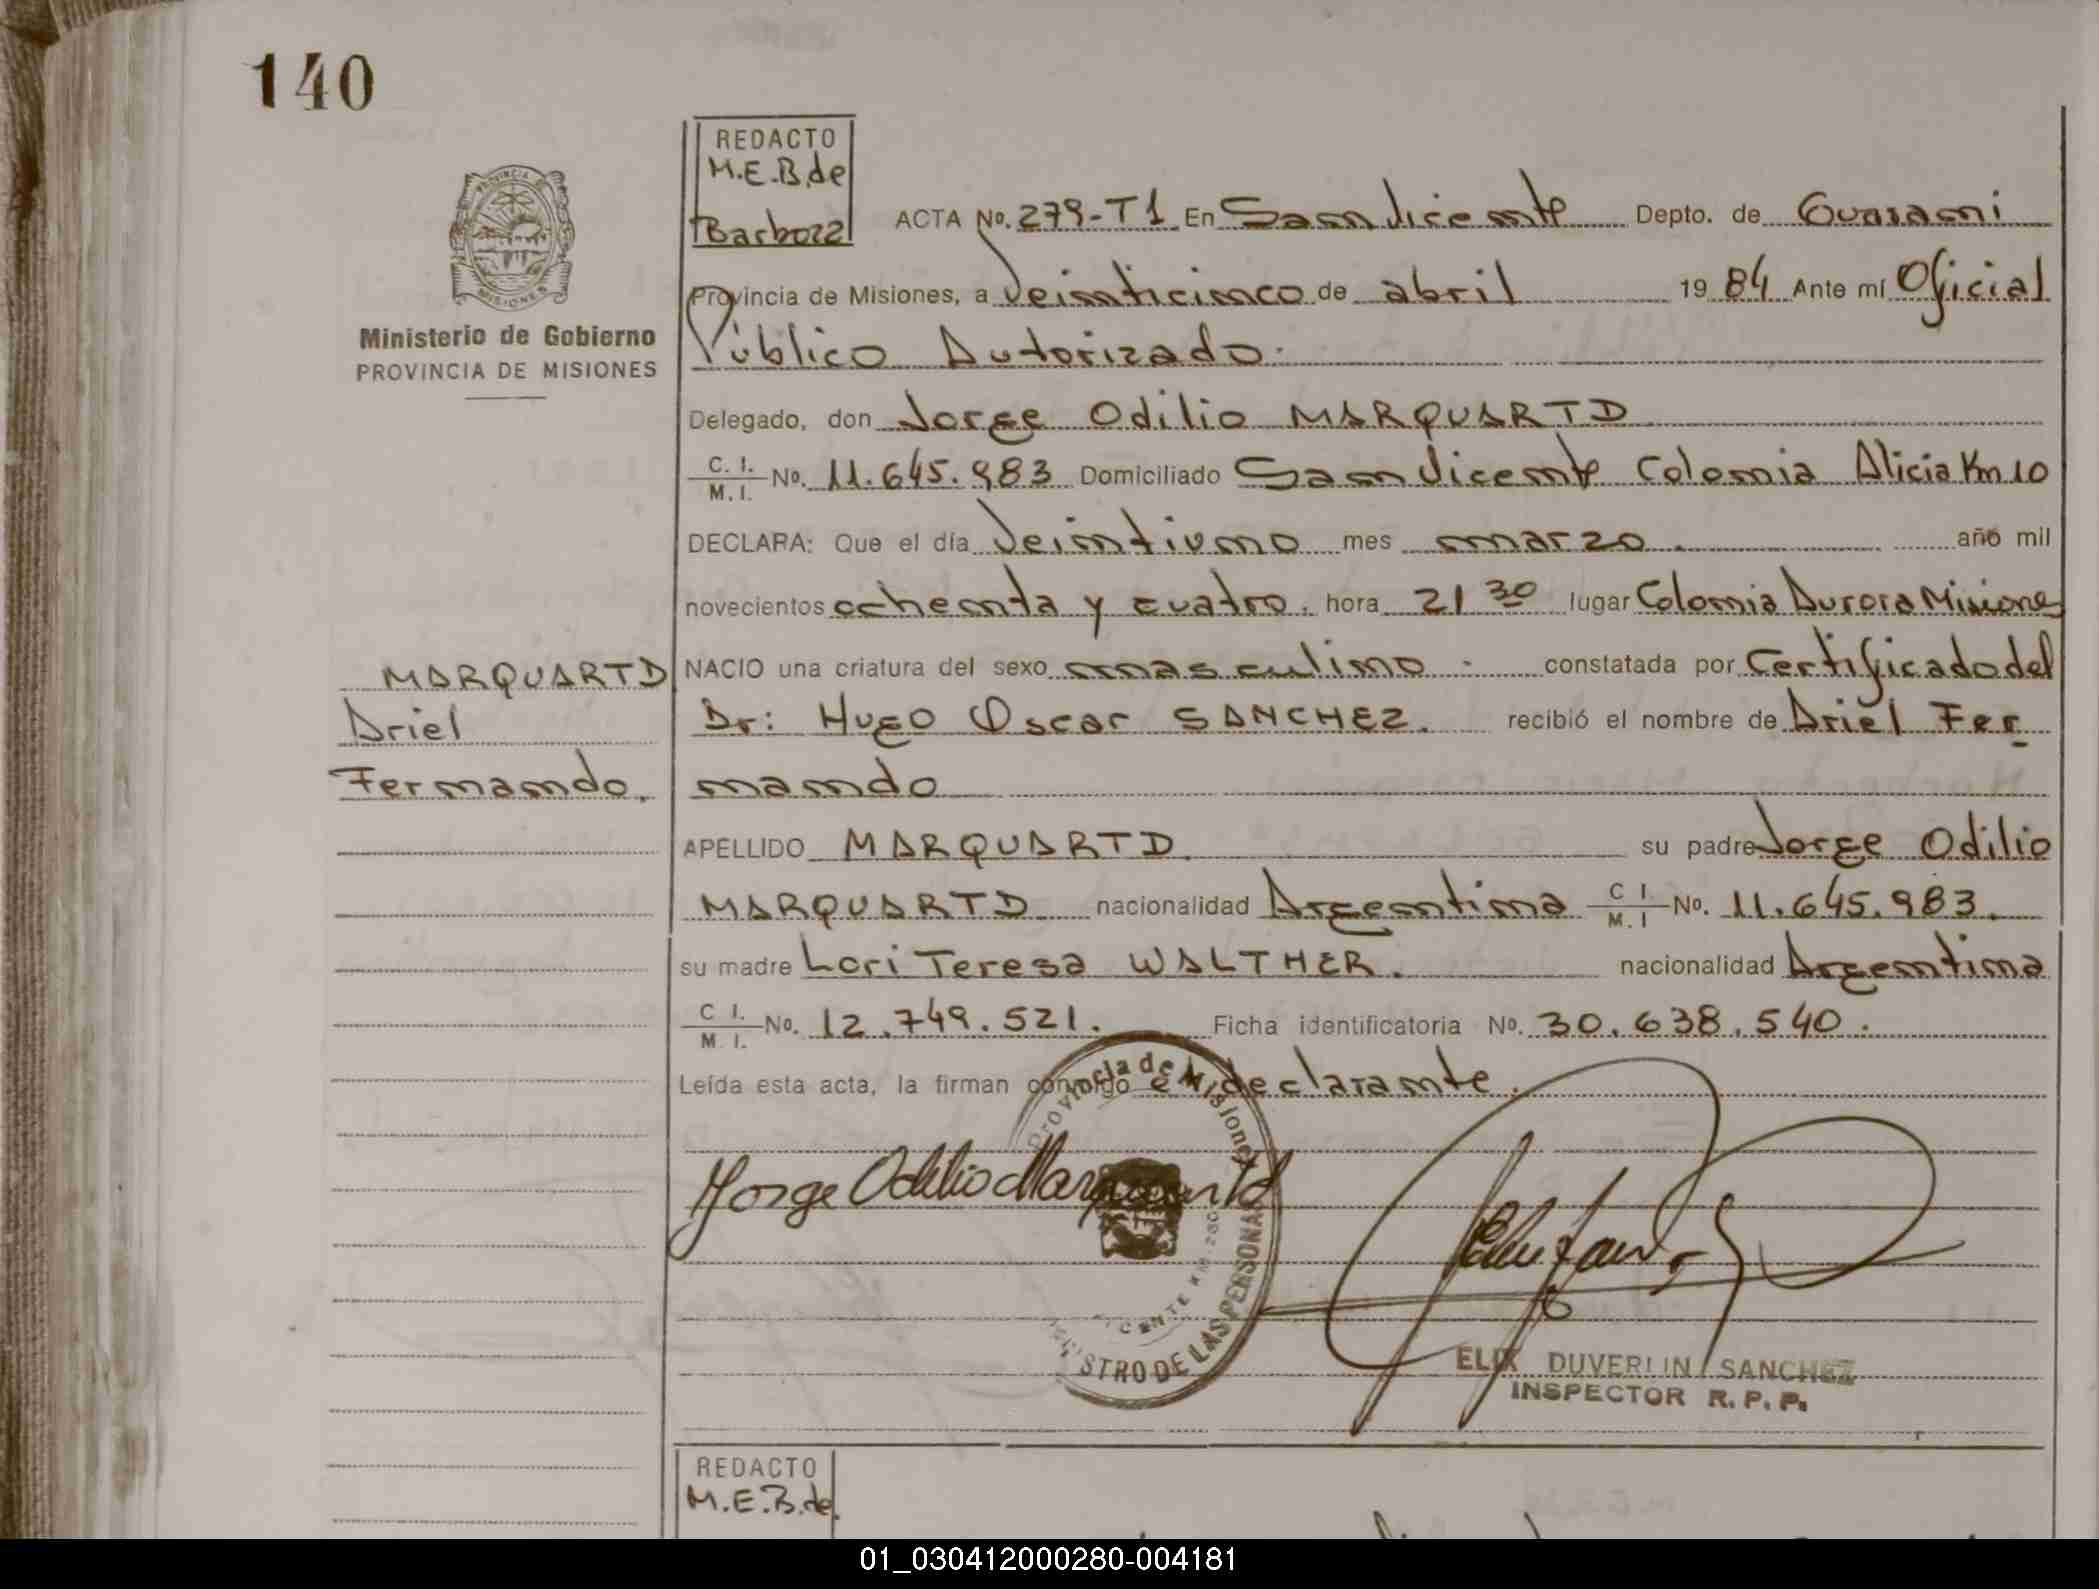 140
REDACTO
M.E.B.de
Barboza
ACTA No. 279-T1 En San Vicente Depto. de Guarani
Provincia de Misiones, a Veinticinco de abril 1984 Ante mí Oficial
Público Autorizado.
PROVINCIA DE
MISIONES
Ministerio de Gobierno
PROVINCIA DE MISIONES
Delegado, don Jorge Odilio MARQUARTD
C. I. / M. I. No. 11.645.983 Domiciliado San Vicente Colonia Alicia Km 10
DECLARA: Que el día Veintiuno mes marzo. año mil
novecientos ochenta y cuatro. hora 21 30 lugar Colonia Aurora Misiones
NACIO una criatura del sexo masculino. constatada por Certificado del
Dr: Hugo Oscar SANCHEZ. recibió el nombre de Ariel Fer
nando
MARQUARTD
Ariel
Fernando.
APELLIDO MARQUARTD. su padre Jorge Odilio
MARQUARTD nacionalidad Argentina C I. / M. I No. 11.645.983.
su madre Lori Teresa WALTHER. nacionalidad Argentina
C I. / M. I. No. 12.749.521. Ficha identificatoria No. 30.638.540.
Leída esta acta, la firman conmigo el declarante.
Provincia de Misiones
Jorge Odilio Marquartd
STRO DE LAS PERSONAS
DUVERLIN SANCHEZ
INSPECTOR R. P. P.
REDACTO
M.E.B.de
01_030412000280-004181